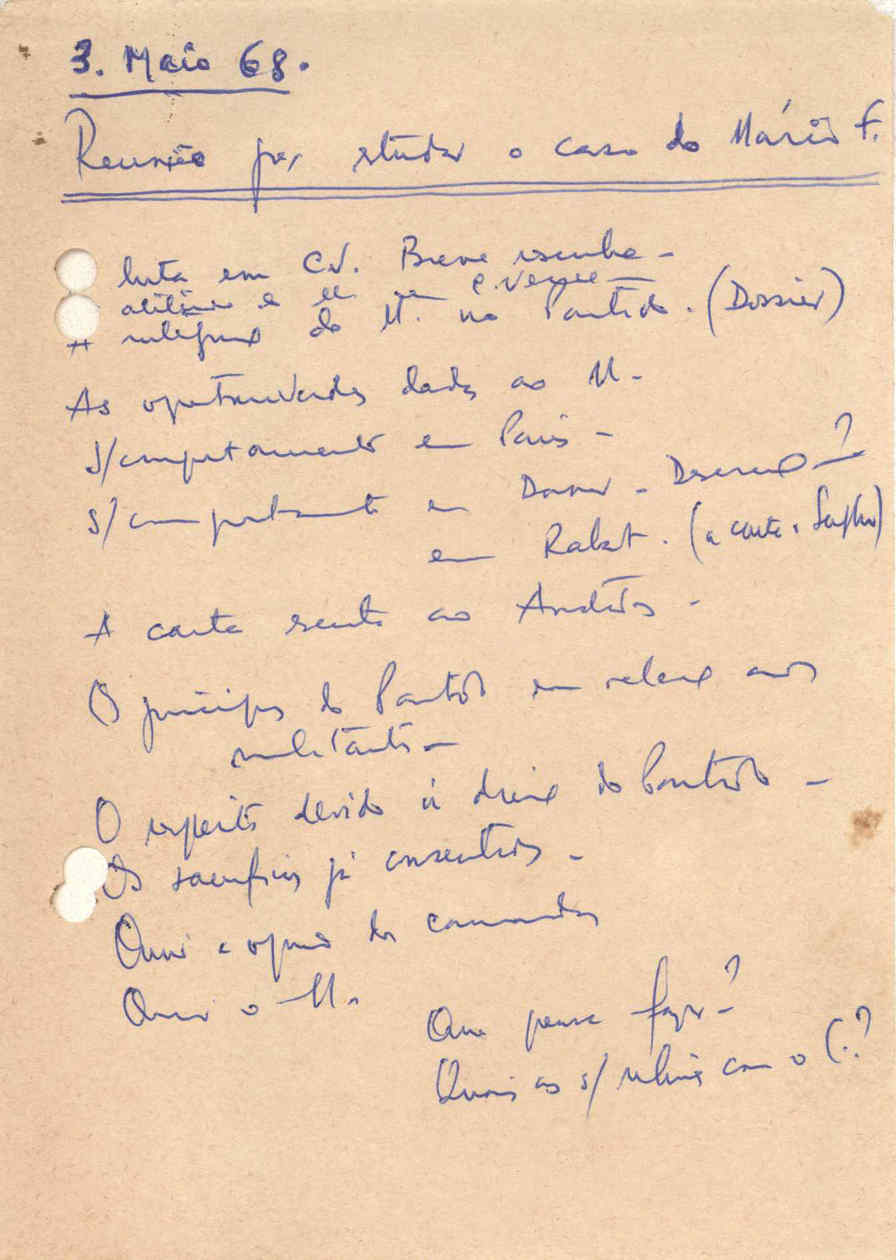 3. Maio 68.
Reunião para estudar o caso do Mário F.
luta em C.V. Breve resenha –
do M. no Partido. (Dossier)
As oportunidades dadas ao M –
S/comportamento em Paris –
S/comportamento em Dakar –
em Rabat. (a carta
A carta escrita ao –
O princípio do Partido em relação aos
militantes –
O respeito devido à do Partido –
Os sacrifícios já consentidos –
Ouvir a opinião dos camaradas
Ouvir o M.
Que pensa fazer?
Quais as s/ com o C.?